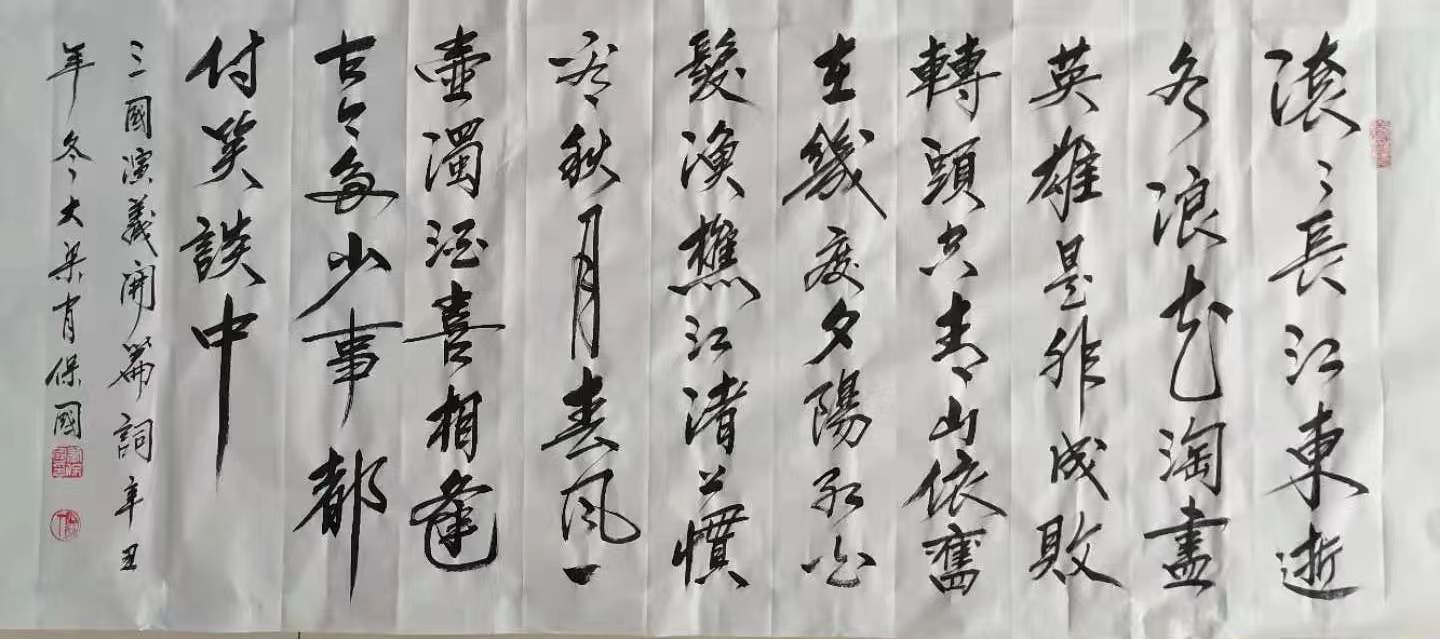 滚〻長江東逝
水浪花淘盡
英雄是非成敗
轉頭空青山依舊
在幾度夕陽紅白
髮漁樵江渚上慣
看秋月春風一
壺濁酒喜相逢
古今多少事都
付笑談中
三國演義開篇詞辛丑
年冬大梁肖保國